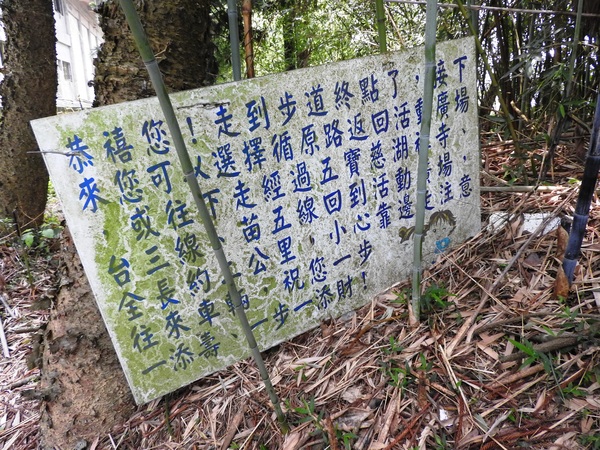 恭禧您!走到步道終點了,接下
來您可以選擇循原路返回活動廣場
,或往下走經過五寶慈湖禪寺、
台三線、苗五線回到活動廣場,
全長約 公里,小心靠邊行走,注意
往來車輛,祝您一步
一添壽 一步一添財!